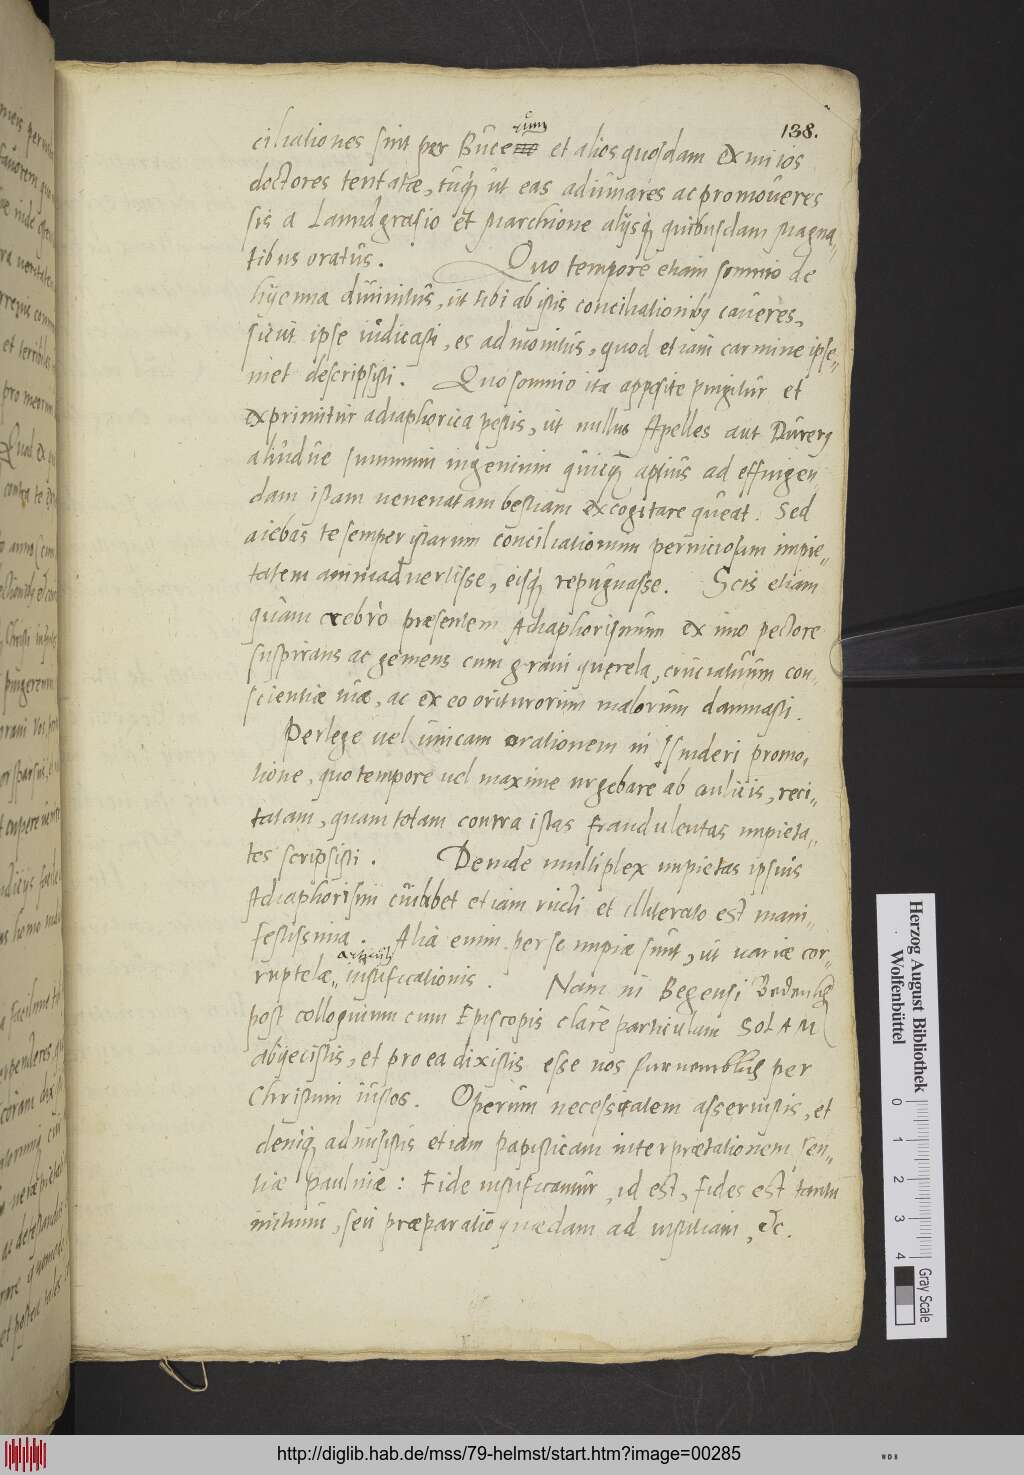 138.
ciliationes sint per Bucerum et alios quosdam eximios
doctores tentatæ, tuq́ ut eas adiuuares ac promoueres
sis a Lanndgrafio et Marchione alijsq́ quibusdam Magna„
tibus oratus. Quo tempore etiam somnio de
hyenna diuinitus, ut tibi ab istis conciliationibꝰ caueres,
sicut ipse iudicasti, es admonitus, quod etiam carmine ipse„
met descripsisti. Quo somnio ita apposite pingitur et
exprimitur adiaphorica pestis, ut nullus Apelles aut Durerꝰ
aliudue summum ingenium quicq̃ aptius ad effingen„
dam istam uenenatam bestiam excogitare queat. Sed
aiebas te semper istarum conciliationum perniciosam impie„
tatem animaduertisse, eisq́ repugnasse. Scis etiam
quam crebrò præsentem Adiaphorismum ex imo pectore
suspirans ac gemens cum graui querela, cruciatuum con„
scientiæ tuæ, ac ex eo oriturorum malorum damnasti.
Perlege uel unicam orationem in Snideri promo„
tione, quo tempore uel maxime urgebare ab aulicis, reci„
tatam, quam totam contra istas fraudulentas impieta„
tes scripsisti. Deinde multiplex impietas ipsius
Adiaphorismi cuilibet etiam rudi et illiterato est mani„
festissima. Alia enim per se impia sunt, ut uariæ cor„
ruptelæ articuli iustificationis. Nam in Begensi Bedencken
post colloquium cum Episcopis clare particulam SOLAM
abiecistis, et pro ea dixistis esse nos furnemblich per
Christum iustos. Operum necessitatem asseruistis, et
deniq́ admisistis etiam papisticam interpretationem sen„
tiæ paulinæ: Fide iustificamur, id est, fides est tantũ
initium, seu præparatio quædam ad iustitiam, etc.
Herzog August Bibliothek
Wolfenbüttel
0 1 2 3 4
Gray Scale
http://diglib.hab.de/mss/79-helmst/start.htm?image=00285
WDB